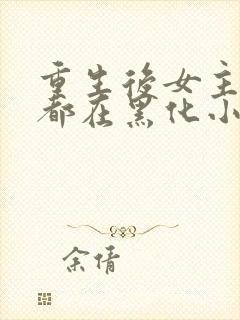 重生后女主
都在黑化小
余倩